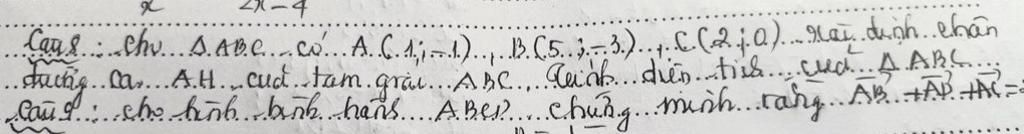 x 2x-4
Câu 8: cho Δ ABC có A(1;-1), B(5;-3), C(2;0) xác định chân
đường cao AH của tam giác ABC, tính diện tích của Δ ABC
Câu 9: cho hình bình hành ABCD chứng minh rằng AB→ + AD→ + AC→ =